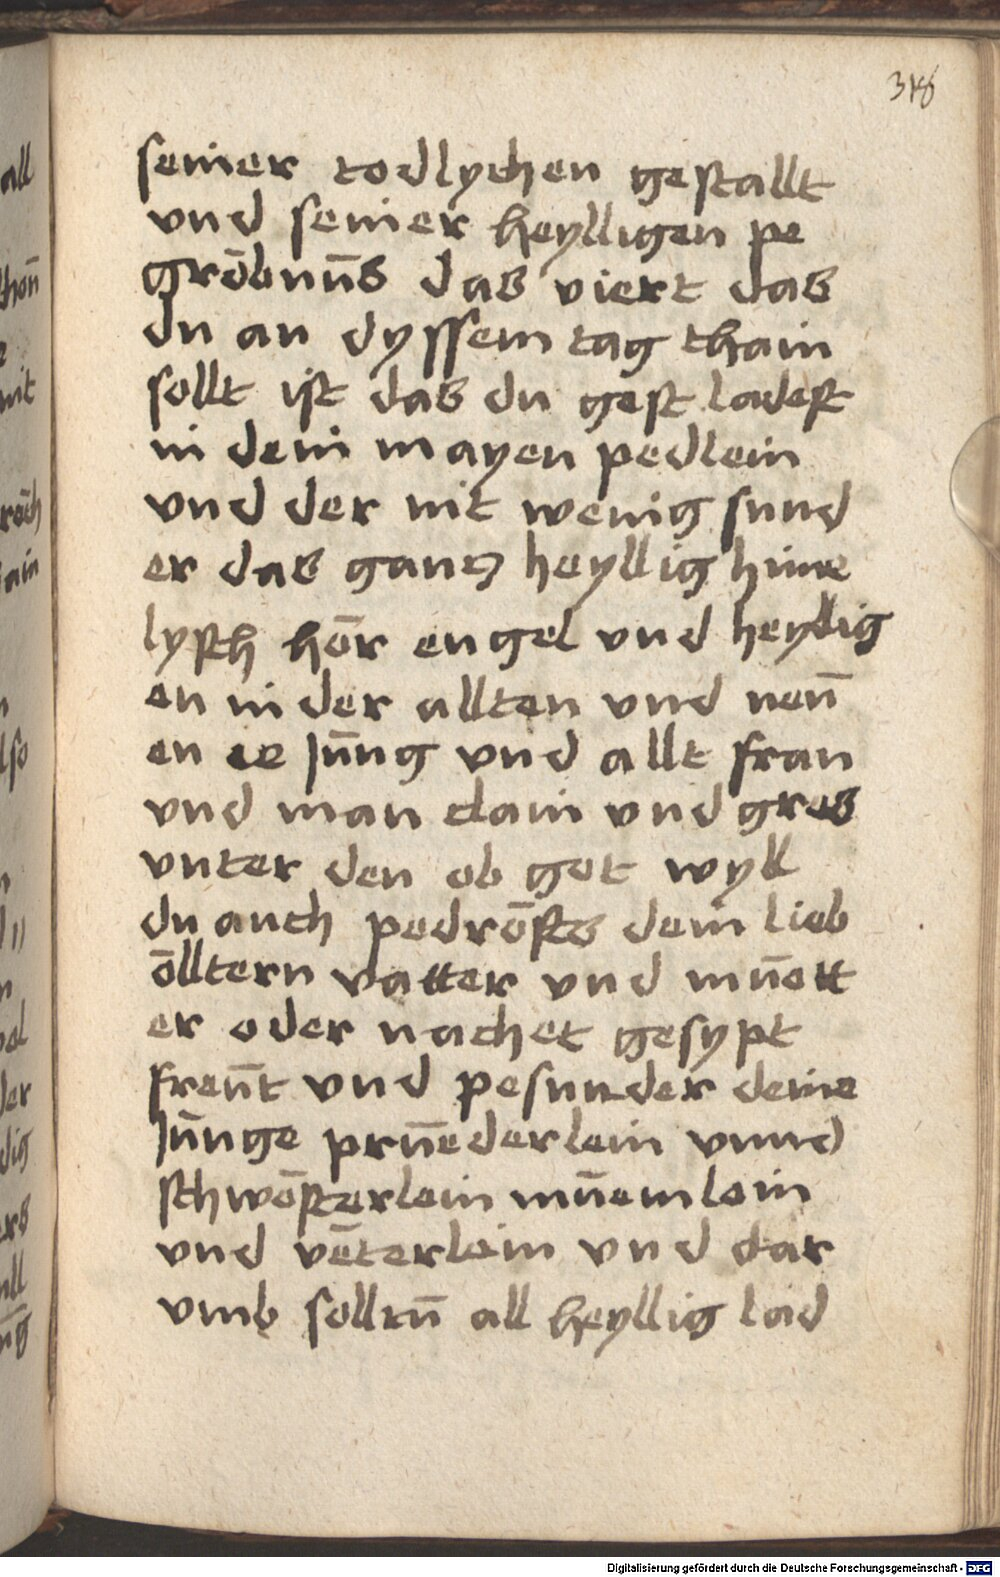 318
seiner todlychen gestallt
vnd seiner heylligen pe
gröbnu̅s das viert das
du an dyssem tag thain
sollt ist das du gest ladest
in dein mayen pedlein
vnd der nit wenig sund
er das gancz heyllig hime
lysch hör engel vnd heyllig
en in der allten vnd neu̅
en ee Ju̅ng vnd allt frau
vnd man clain vnd gros
vnter den ob got wyll
du auch pedröfts dein lieb
ölltern vatter vnd mu̅ett
er oder nachet gesypt
freu̅t vnd pesunder deine
Ju̅nge pru̅ederlein vnnd
schwösterlein mu̅emlein
vnd veterlein vnd dar
vmb solltu̅ all heyllig lad
Digitalisierung gefördert durch die Deutsche Forschungsgemeinschaft - DFG